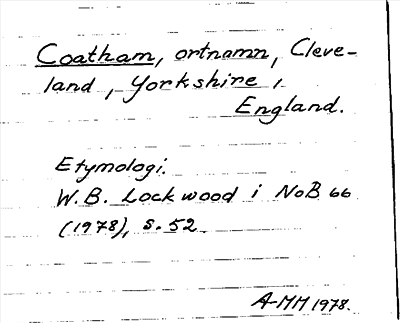 Coatham, ortnamn, Cleve-
land, Yorkshire,
England.
Etymologi.
W.B. Lockwood i NoB 66
(1978), s. 52
A-MM 1978.